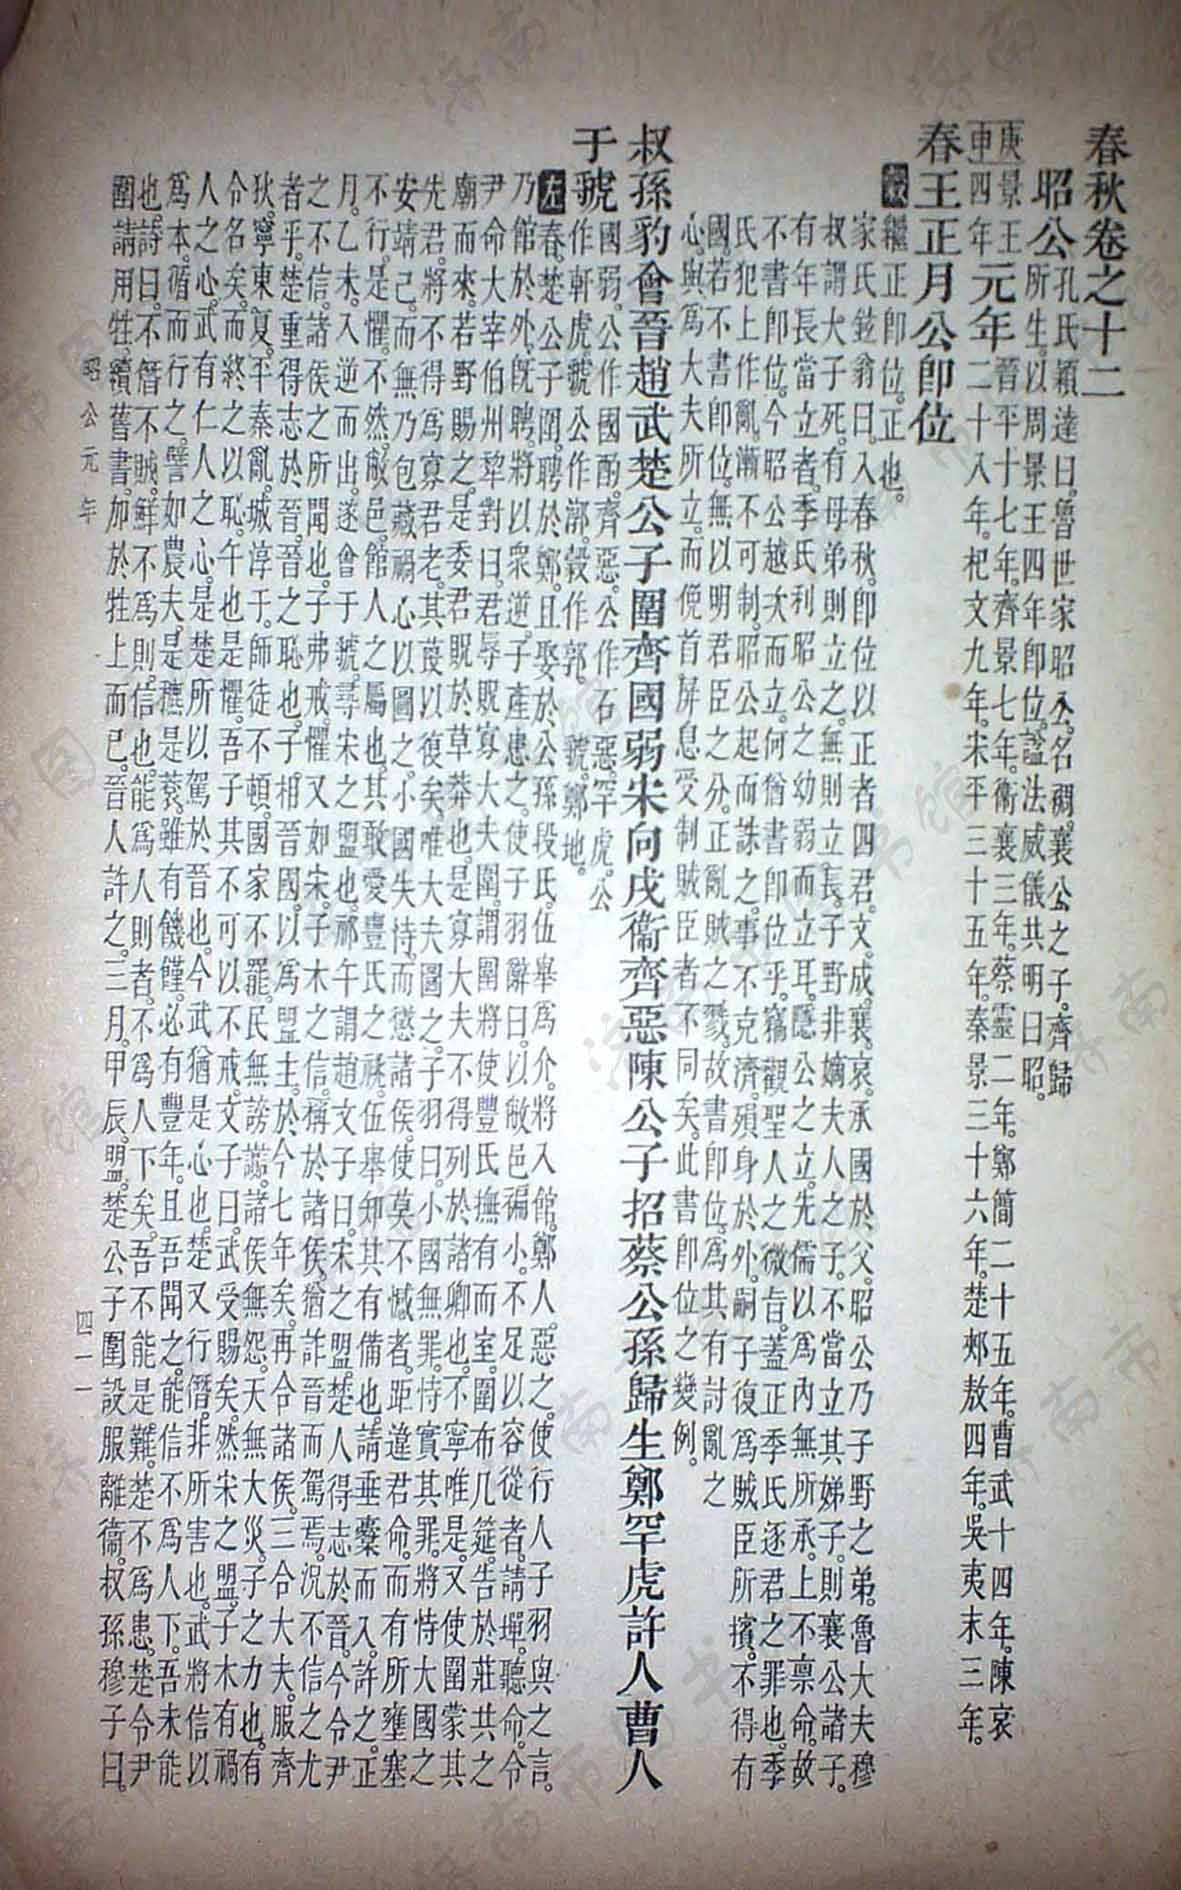 春秋卷之十二
昭公孔氏穎達曰。魯世家昭公。名裯。襄公之子。齊歸
所生。以周景王四年卽位。諡法。威儀共明曰昭。
庚申景王四年元年晉平十七年。齊景七年。衞襄三年。蔡靈二年。鄭簡二十五年。曹武十四年。陳哀
二十八年。杞文九年。宋平三十五年。秦景三十六年。楚郟敖四年。吳夷末三年。
春王正月公卽位
穀繼正卽位。正也。
家氏鉉翁曰。入春秋。卽位以正者四君。文。成。襄。哀。承國於父。昭公乃子野之弟。魯大夫穆
叔謂大子死。有母弟則立之。無則立長。子野非嫡夫人之子。不當立其娣子。則襄公諸子。
有年長當立者。季氏利昭公之幼弱而立耳。隱公之立。先儒以爲內無所承。上不禀命。故
不書卽位。今昭公越次而立。何猶書卽位乎。竊觀聖人之微旨。蓋正季氏逐君之罪也。季
氏犯上作亂。漸不可制。昭公起而誅之。事不克濟。殞身於外。嗣子復爲賊臣所擯。不得有
國。若不書卽位。無以明君臣之分。正亂賊之戮。故書卽位。爲其有討亂之
心。與爲大夫所立。而俛首屏息受制賊臣者不同矣。此書卽位之變例。
叔孫豹會晉趙武楚公子圍齊國弱宋向戌衞齊惡陳公子招蔡公孫歸生鄭罕虎許人曹人
于虢國弱。公作國酌。齊惡。公作石惡。罕虎。公
作軒虎。虢。公作漷。穀作郭。 虢。鄭地。
左春。楚公子圍。聘於鄭。且娶於公孫段氏。伍舉爲介。將入館。鄭人。惡之。使行人子羽與之言。
乃館於外。旣聘。將以衆逆。子產患之。使子羽辭曰。以敝邑褊小。不足以容從者。請墠。聽命。令
尹命大宰伯州犂對曰。君辱貺寡大夫圍。謂圍將使豐氏撫有而室。圍布几筵。告於莊共之
廟而來。若野賜之。是委君貺於草莽也。是寡大夫不得列於諸卿也。不寧唯是。又使圍蒙其
先君。將不得爲寡君老。其蔑以復矣。唯大夫圖之。子羽曰。小國無罪。恃實其罪。將恃大國之
安靖己。而無乃包藏禍心以圖之。小國失恃。而懲諸侯。使莫不憾者。距違君命。而有所壅塞
不行。是懼。不然。敝邑。館人之屬也。其敢愛豐氏之祧。伍舉知其有備也。請垂櫜而入。許之。正
月。乙未。入逆而出。遂會于虢。尋宋之盟也。祁午謂趙文子曰。宋之盟。楚人得志於晉。今令尹
之不信。諸侯之所聞也。子弗戒。懼又如宋。子木之信。稱於諸侯。猶詐晉而駕焉。況不信之尤
者乎。楚重得志於晉。晉之恥也。子相晉國。以爲盟主。於今七年矣。再合諸侯。三合大夫。服齊
狄。寧東夏。平秦亂。城淳于。師徒不頓。國家不罷。民無謗讟。諸侯無怨。天無大災。子之力也。有
令名矣。而終之以恥。午也是懼。吾子其不可以不戒。文子曰。武受賜矣。然宋之盟。子木有禍
人之心。武有仁人之心。是楚所以駕於晉也。今武猶是心也。楚又行僭。非所害也。武將信以
爲本。循而行之。譬如農夫。是穮是蔉。雖有饑饉。必有豐年。且吾聞之。能信不爲人下。吾未能
也。詩曰。不僭不賊。鮮不爲則。信也。能爲人則者。不爲人下矣。吾不能是難。楚不爲患。楚令尹
圍請用牲。讀舊書。加於牲上而已。晉人許之。三月。甲辰。盟。楚公子圍。設服離衞。叔孫穆子曰。
昭公元年
四一一